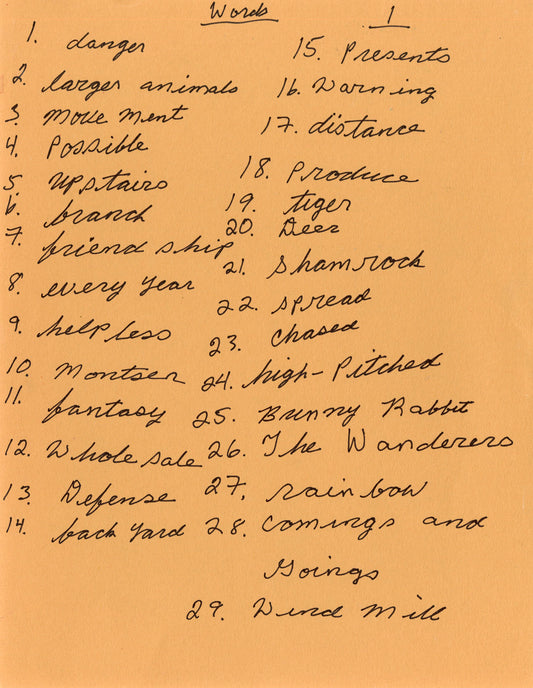 Words 1
1. danger
2. larger animals
3. move ment
4. Possible
5. upstairs
6. branch
7. friend ship
8. every year
9. help less
10. Montser
11. fantasy
12. Whole sale
13. Defense
14. back yard
15. Presents
16. Warning
17. distance
18. Produce
19. tiger
20. Deer
21. Shamrock
22. spread
23. chased
24. high-Pitched
25. Bunny Rabbit
26. The Wanderers
27. rain bow
28. comings and
Goings
29. Wind mill